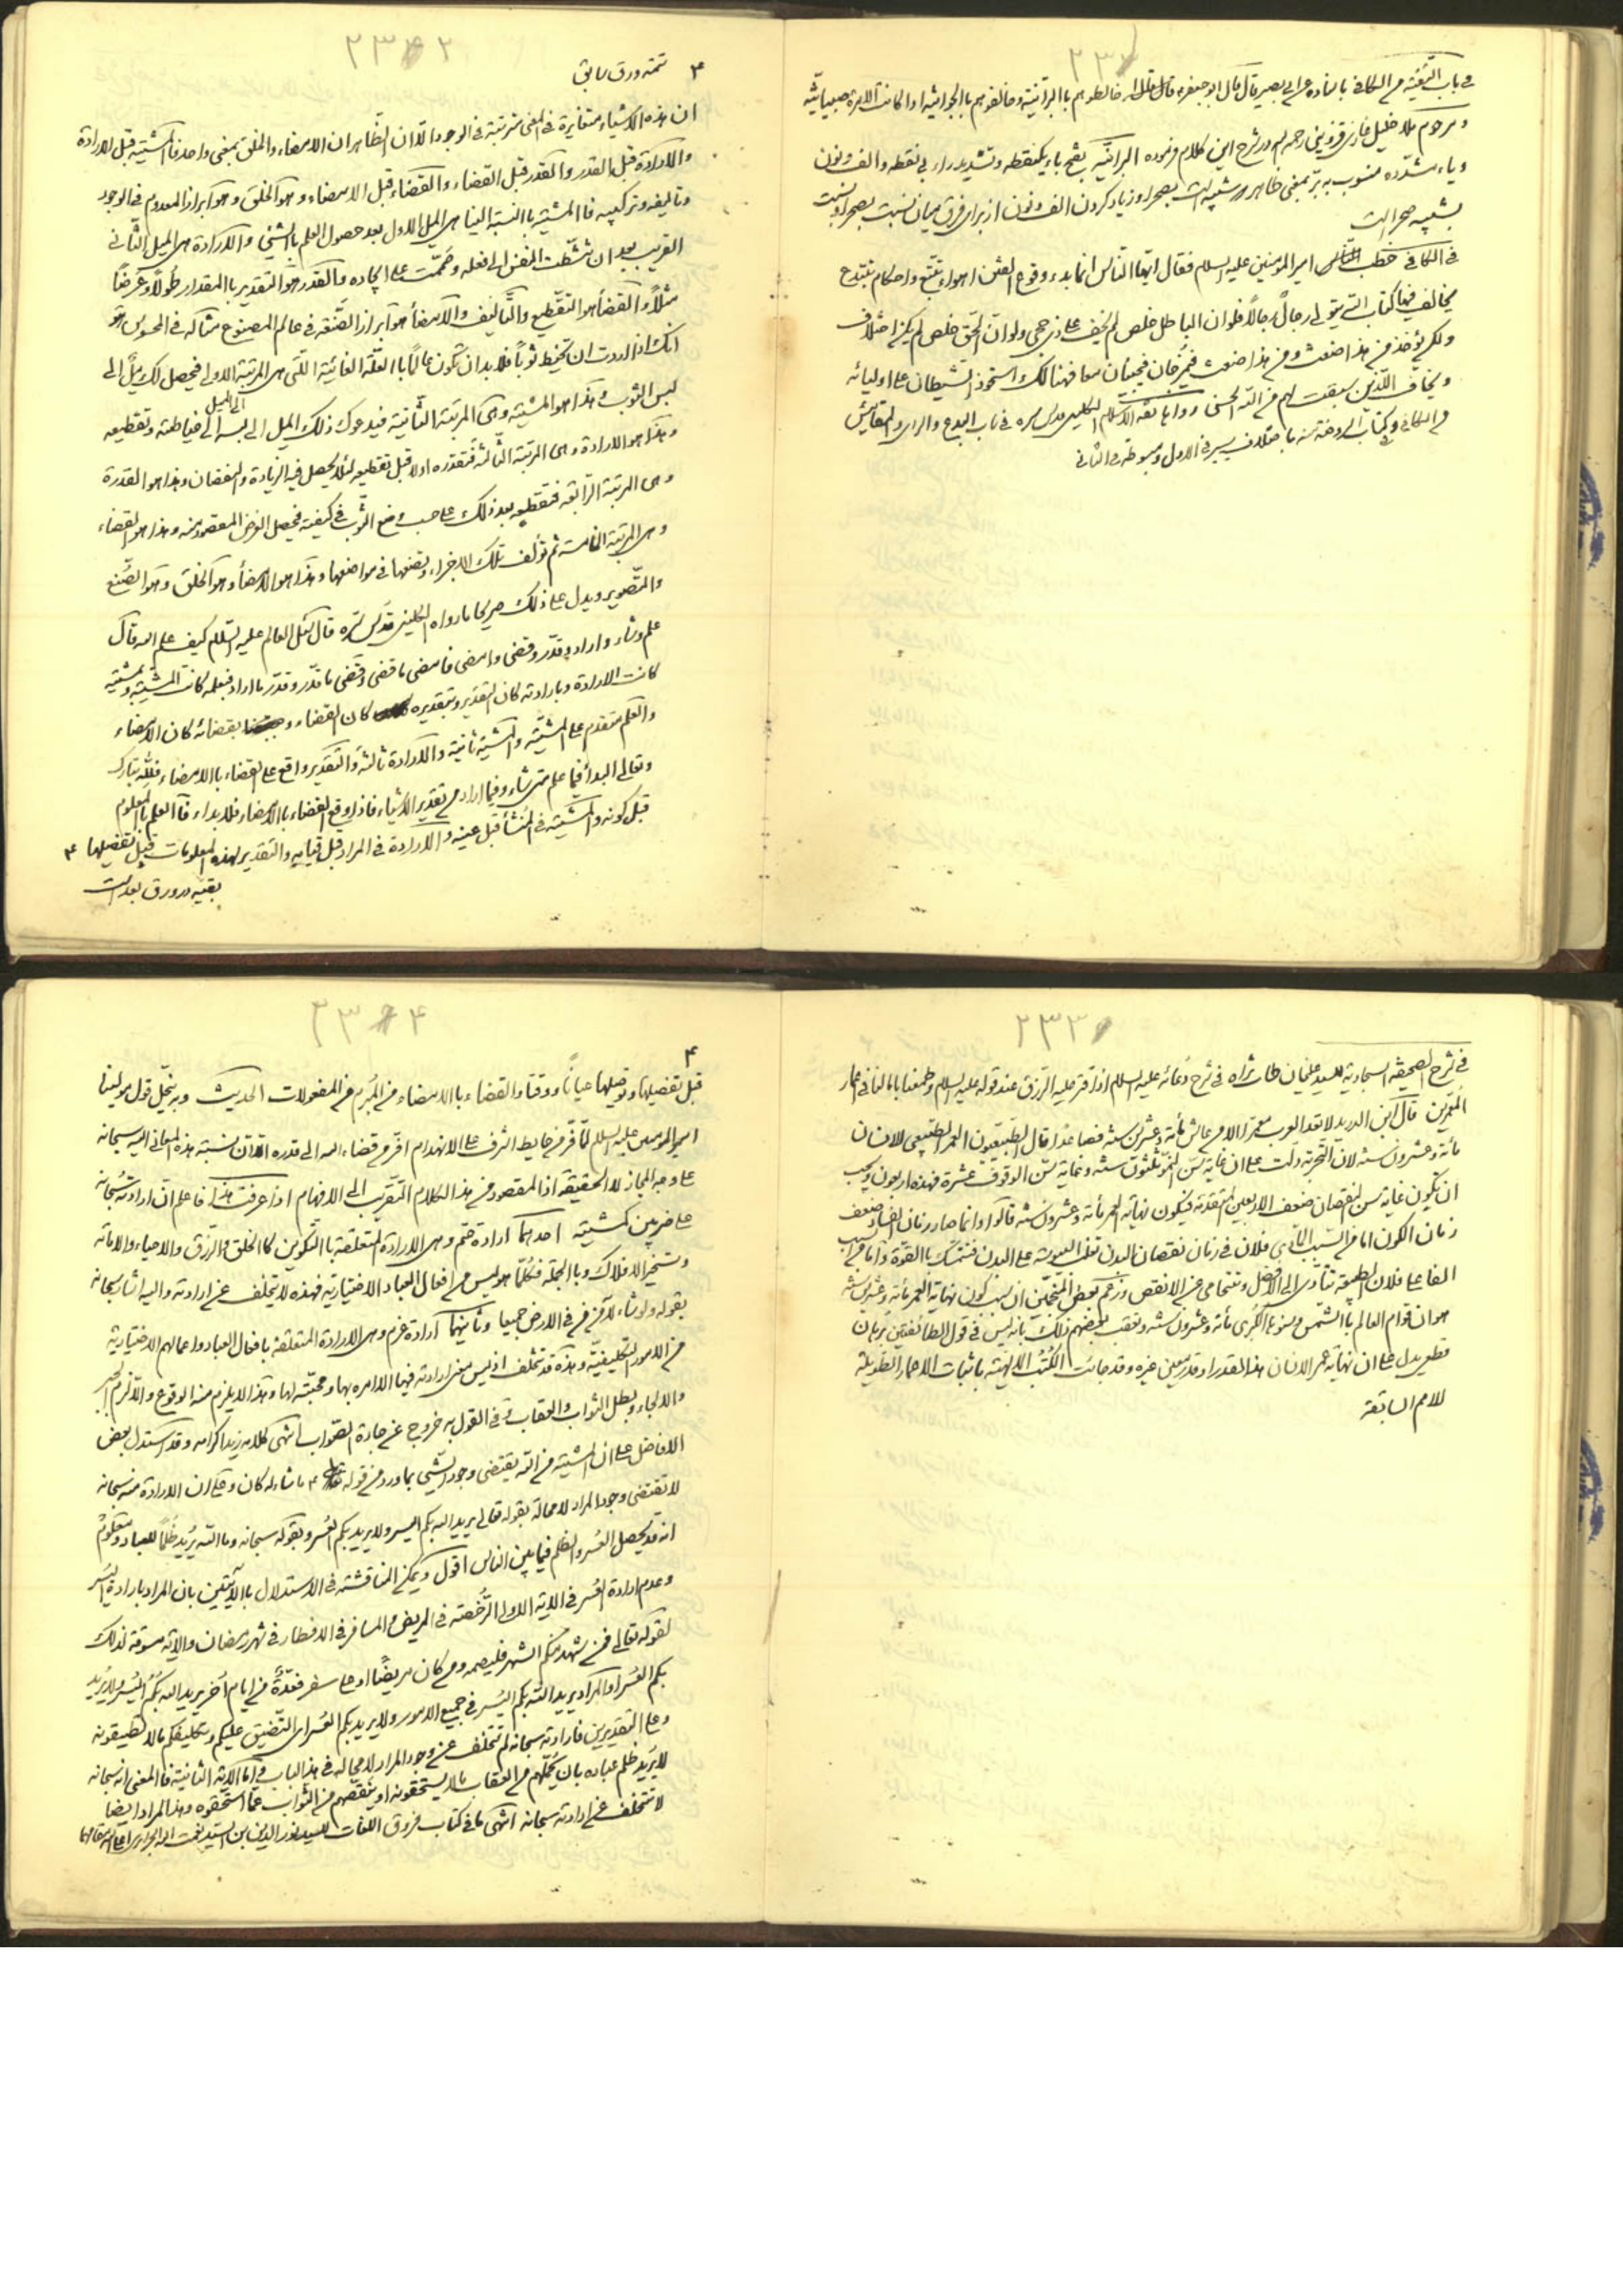 ۲۳۱
فی باب التقیة من الکافی باسناده عن ابی بصیر قال قال ابو جعفر ع خالطوهم بالبرانیة و خالفوهم بالجوانیة اذا کانت الامرة صبیانیة
و مرحوم ملا خلیل غازی قزوینی رحمه الله در شرح این کلام فرموده البرانیة بفتح باء یکنقطه و تشدید راء بی نقطه و الف و نون
و یاء مشدده منسوب به بر بمعنی ظاهر و زیاد کردن الف و نون از برای فرق میان نسبت بصحرا و نسبت
بشبیه صحرا است
فی الکافی خطب امیر المومنین علیه السلام فقال ایها الناس انما بدء وقوع الفتن اهواء تتبع و احکام تبتدع
یخالف فیها کتاب الله یتولی رجال رجالا فلو ان الباطل خلص لم یخف علی ذی حجی و لو ان الحق خلص لم یکن اختلاف
و لکن یؤخذ من هذا ضغث و من هذا ضغث فیمزجان فیجیئان معا فهنالک استحوذ الشیطان علی اولیائه
و نجا الذین سبقت لهم من الله الحسنی رواها ثقة الاسلام الکلینی قدس سره فی باب البدع و الرای و المقائیس
من الکافی و فی کتاب الروضة منه باختلاف یسیر فی الاول و مبسوطة فی الثانی
۲۳۲
۴ تتمه ورق سابق
ان هذه الاشیاء متغایرة فی المعنی مترتبة فی الوجود الا ان الظاهر ان الامضاء و الخلق بمعنی واحد فالمشیة قبل الارادة
و الارادة قبل القدر و القدر قبل القضاء و القضاء قبل الامضاء و هو الخلق و هو ابراز المعدوم فی الوجود
و تالیفه و ترکیبه فالمشیة بالنسبة الینا هی المیل الاول بعد حصول العلم بالشیء و الارادة هی المیل الثانی
القریب بعد ان نشطت النفس الی فعله و صممت علی ایجاده و القدر هو التقدیر بالمقدار طولا و عرضا
مثلا و القضاء هو التقطیع و التالیف و الامضاء هو ابراز الصنعة فی عالم المصنوع مثاله فی المحسوس هو
انک اذا اردت ان تخیط ثوبا فلا بد ان تکون عالما بالعلة الغائیة التی هی المرتبة الاولی فیحصل لک میل الی
لبس الثوب و هذا هو المشیة و هی المرتبة الثانیة فیدعوک ذلک المیل الی لبسه الی المیل الی خیاطته و تقطیعه
و هذا هو الارادة و هی المرتبة الثالثة فتقدره اولا قبل تقطیعه لئلا یحصل فیه الزیادة و النقصان و هذا هو القدرة
و هی المرتبة الرابعة فتقطعه بعد ذلک علی حسب وضع الثوب فی کیفیته فیحصل الغرض المقصود منه و هذا هو القضاء
و هی المرتبة الخامسة ثم تؤلف تلک الاجزاء و تضعها فی مواضعها و هذا هو الامضاء و هو الخلق و هو الصنع
و التصویر و یدل علی ذلک صریحا ما رواه الکلینی قدس سره قال سئل العالم علیه السلام کیف علم الله قال
علم و شاء و اراد و قدر و قضی و امضی فامضی ما قضی و قضی ما قدر و قدر ما اراد فبعلمه کانت المشیة و بمشیته
کانت الارادة و بارادته کان التقدیر و بتقدیره کان القضاء و بقضائه کان الامضاء
و العلم متقدم علی المشیة و المشیة ثانیة و الارادة ثالثة و التقدیر واقع علی القضاء بالامضاء فلله تبارک
و تعالی البداء فیما علم متی شاء و فیما اراد من تقدیر الاشیاء فاذا وقع القضاء بالامضاء فلا بداء فالعلم بالمعلوم
قبل کونه و المشیة فی المنشأ قبل عینه و الارادة فی المراد قبل قیامه و التقدیر لهذه المعلومات قبل تفصیلها ۴
بقیه در ورق بعد است
۲۳۳
فی شرح الصحیفة السجادیة للسید علیخان طاب ثراه فی شرح دعائه علیه السلام اذا قتر علیه الرزق عند قوله علیه السلام و طمعنا بامالنا فی اعمار
المعمرین قال ابن الدرید لا تعد العرب معمرا الا من عاش مأة و عشرین سنة فصاعدا قال الطبیعیون العمر الطبیعی للانسان
مأة و عشرون سنة لان التجربة دلت علی ان غایة سن النمو ثلثون سنة و غایة سن الوقوف عشرة فهذه اربعون و یجب
ان یکون غایة سن النقصان ضعف الاربعین المتقدمة فیکون نهایة العمر مأة و عشرون سنة قالوا و انما صار زمان الفساد ضعف
زمان الکون اما من السبب المادی فلان فی زمان نقصان البدن تغلب الیبوسة علی البدن فتتمسک بالقوة و اما من السبب
الفاعل فلان الطبیعة تتأدی الی الافضل و تتحامی عن الانقص و زعم بعض المنجمین ان سبب کون نهایة العمر مأة و عشرین سنة
هو ان قوام العالم بالشمس و سنوها الکبری مأة و عشرون سنة و تعقب بعضهم ذلک بانه لیس فی قول الطائفتین برهان
قطعی یدل علی ان نهایة عمر الانسان هذا القدر او قدر معین غیره و قد جائت الکتب الالهیة باثبات الاعمار الطویلة
للامم السابقة
۲۳۴
۴
قبل تفصیلها و توصیلها عیانا و وقتا و القضاء بالامضاء هو المبرم من المفعولات الحدیث و به ینحل قول مولینا
امیر المومنین علیه السلام لما فر من حایط اشرف علی الانهدام افر من قضاء الله الی قدره الا ان نسبة هذه المعانی الیه سبحانه
علی وجه المجاز لا الحقیقة اذ المقصود من هذا الکلام التقریب الی الافهام اذا عرفت هذا فاعلم ان ارادته سبحانه
علی ضربین کمشیته احدهما ارادة حتم و هی الارادة المتعلقة بالتکوین کالخلق و الرزق و الاحیاء و الاماتة
و تسخیر الافلاک و بالجملة فکلما هو لیس من افعال العباد الاختیاریة فهذه لا تختلف عن ارادته و الیه اشار سبحانه
بقوله و لو شاء لآمن من فی الارض جمیعا و ثانیهما ارادة عزم و هی الارادة المتعلقة بافعال العباد و اعمالهم الاختیاریة
من الامور التکلیفیة و هذه قد تتخلف اذ لیس معنی ارادته فیها الا امره بها و محبته لها و هذا لا یلزم منه الوقوع و الا لزم الجبر
و الالجاء و بطل الثواب و العقاب و فی القول به خروج عن جادة الصواب انتهی کلامه زید اکرامه و قد استدل بعض
الافاضل علی ان المشیة من الله یقتضی وجود الشیء بما ورد من قوله ۴ ما شاء الله کان و علی ان الارادة منه سبحانه
لا تقتضی وجود المراد لا محالة بقوله تعالی یرید الله بکم الیسر و لا یرید بکم العسر و بقوله سبحانه و ما الله یرید ظلما للعباد و معلوم
انه قد یحصل العسر و الظلم فیما بین الناس اقول و یمکن المناقشة فی الاستدلال بالآیتین بان المراد بارادة الیسر
و عدم ارادة العسر فی الایة الاولی الرخصة فی المریض و المسافر فی الافطار فی شهر رمضان و الایة مسوقة لذلک
لقوله تعالی فمن شهد منکم الشهر فلیصمه و من کان مریضا او علی سفر فعدة من ایام اخر یرید الله بکم الیسر و لا یرید
بکم العسر او المراد یرید الله بکم الیسر فی جمیع الامور و لا یرید بکم العسر ای التضییق علیکم و تکلیفکم ما لا تطیقونه
و علی التقدیرین فارادته سبحانه لم تتخلف عن وجود المراد لا محالة فی هذا الباب و اما الآیة الثانیة فالمعنی انه سبحانه
لا یرید ظلم عباده بان یحملهم من العقاب ما لا یستحقونه او ینقصهم من الثواب عما استحقوه و هذا المراد ایضا
لا تتخلف عن ارادته سبحانه انتهی ما فی کتاب فروق اللغات للسید نور الدین بن السید نعمت الله الجزایری اعلی الله مقامهما